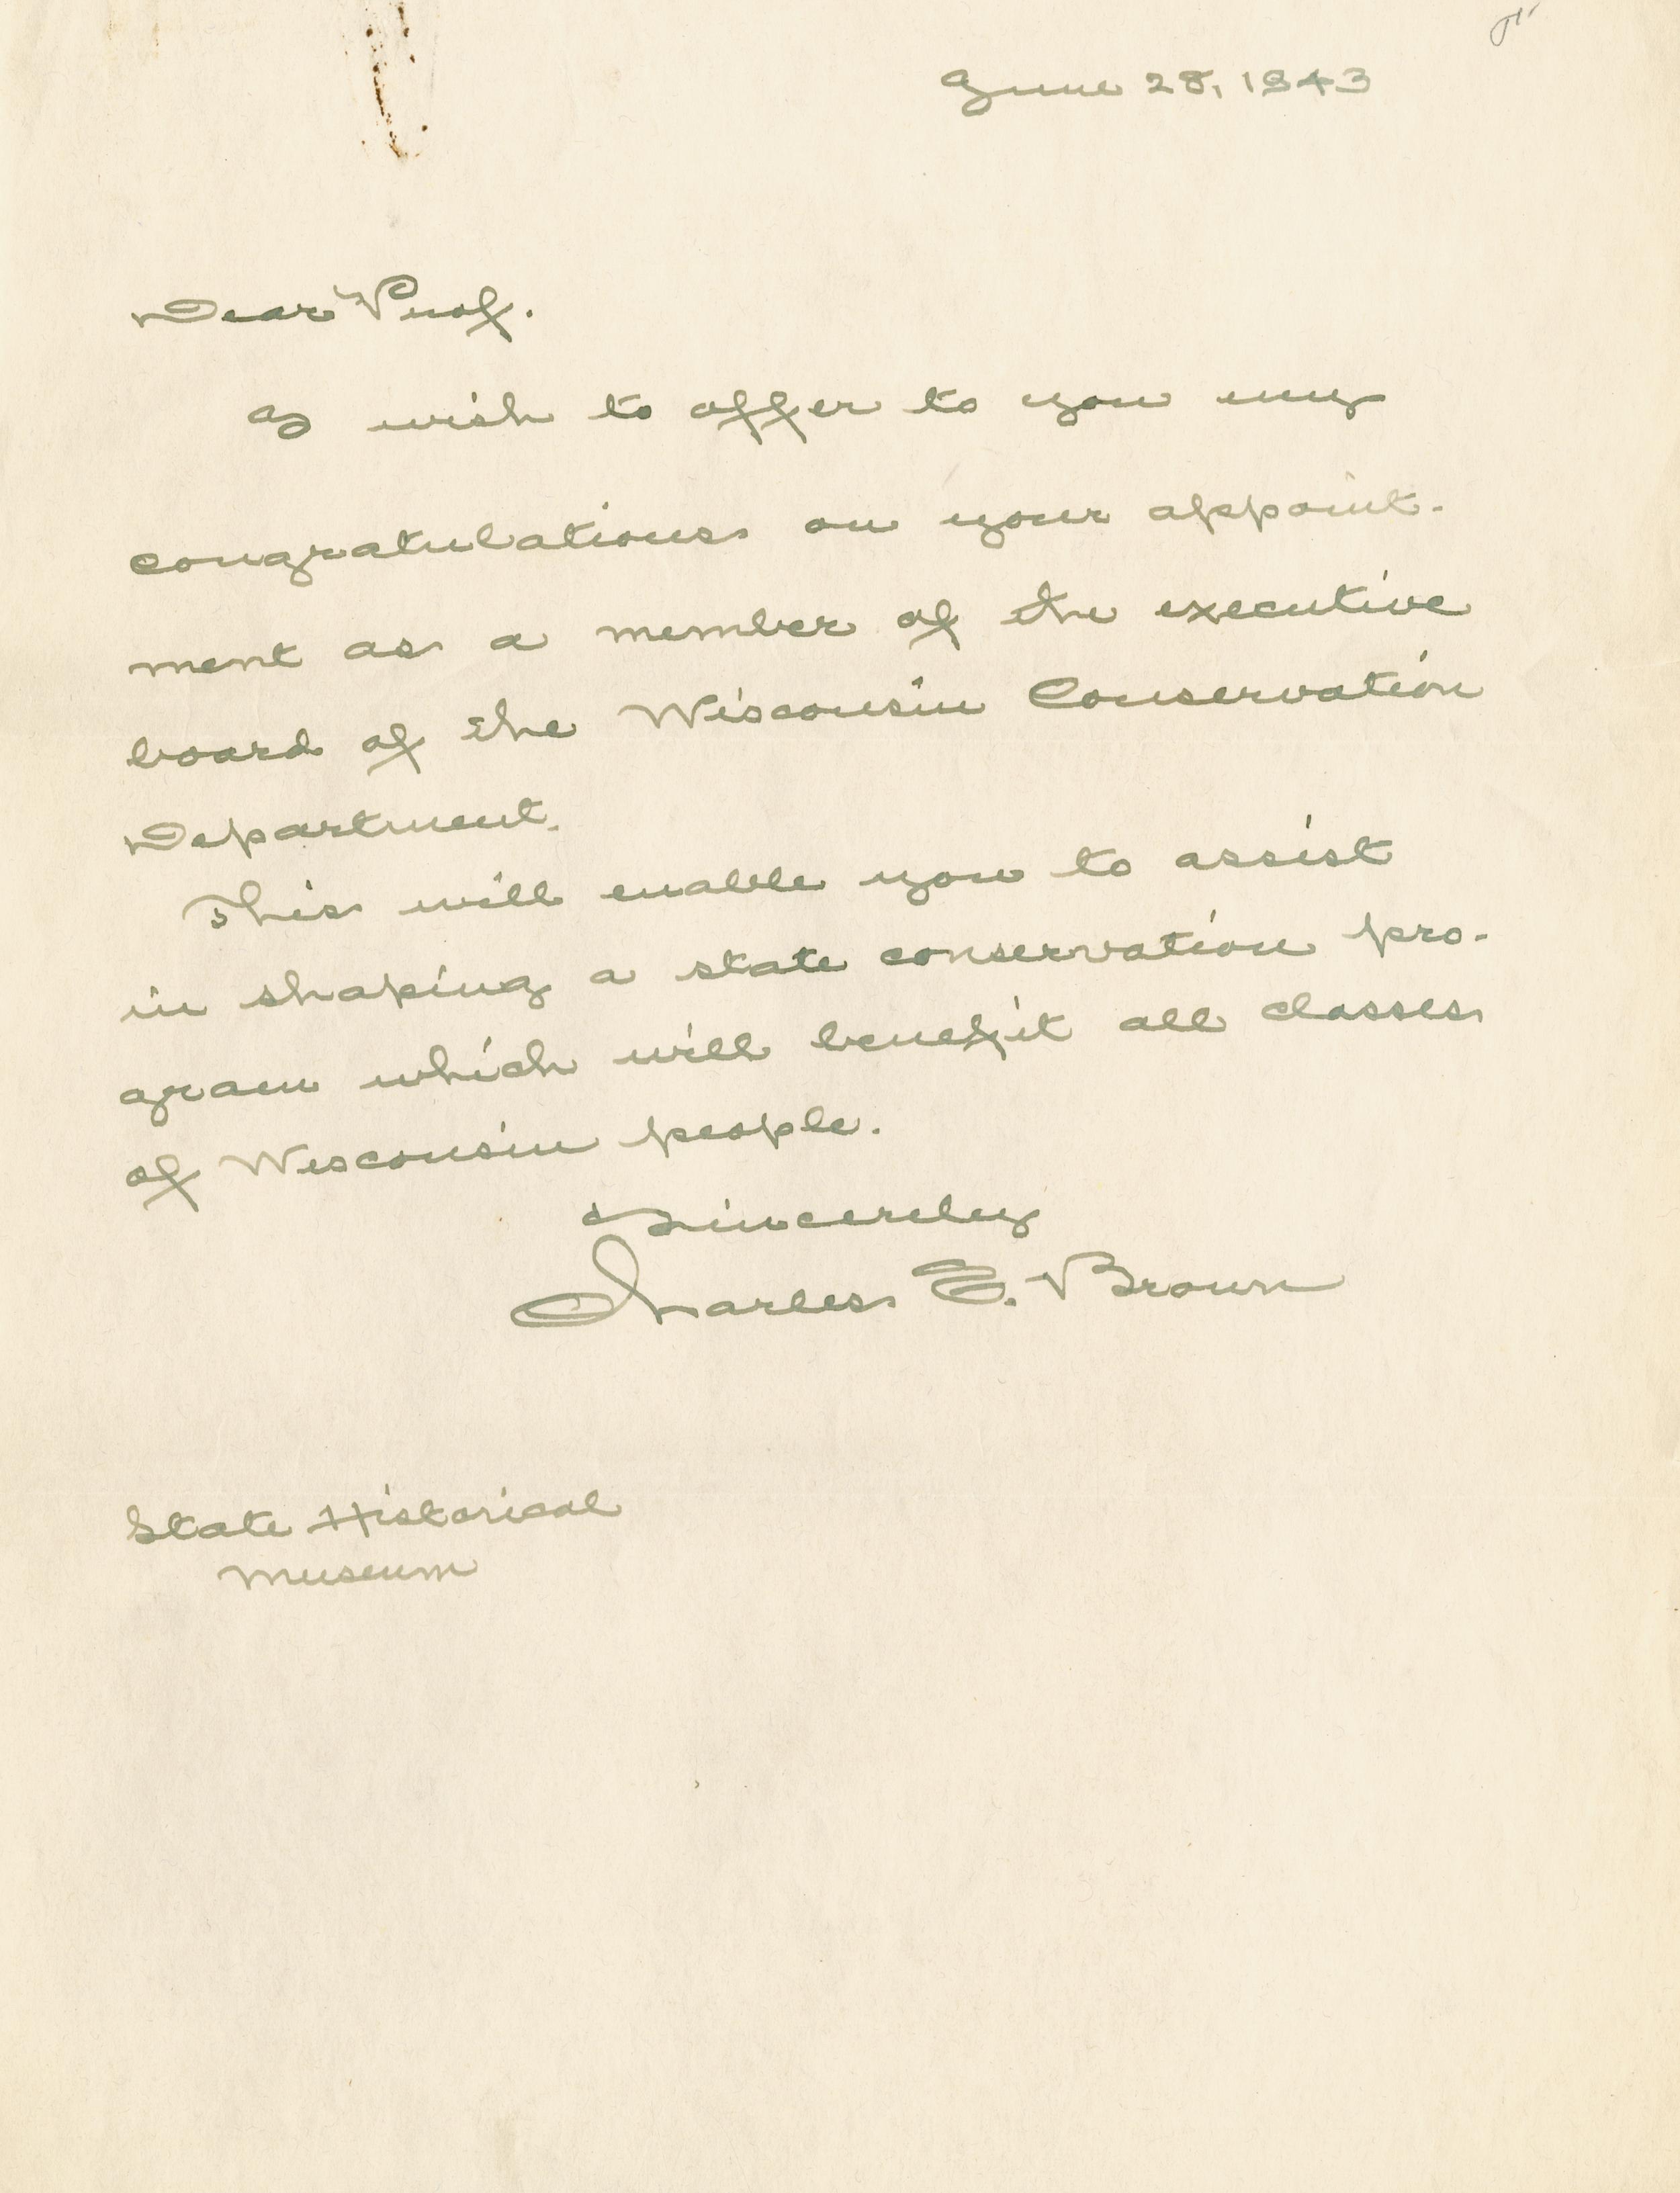 June 28, 1943
Dear Prof.
I wish to offer to you my
congratulations on your appoint-
ment as a member of the executive
board of the Wisconsin Conservation
Department.
This will enable you to assist
in shaping a state conservation pro-
gram which will benefit all classes
of Wisconsin people.
Sincerely
Charles E. Brown
State Historical
Museum